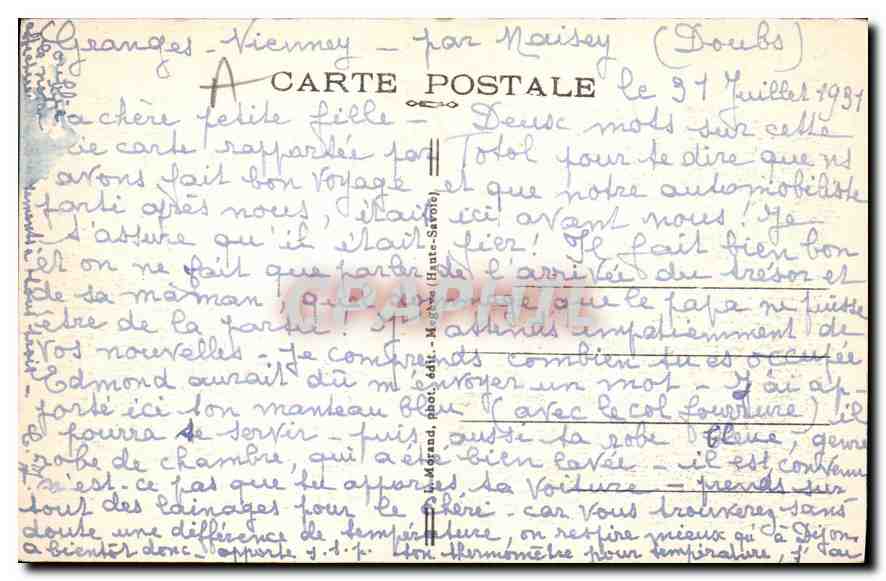 Granges-Vienney - par Naisey (Doubs)
CARTE POSTALE
le 31 Juillet 1931
a chère petite fille - Deux mots sur cette
ie carte rapportée par Totol pour te dire que ns
avons fait bon voyage et que notre automobiliste
parti après nous, était ici avant nous! Je
t'assure qu'il était fier! Il fait bien bon
et on ne fait que parler de l'arrivée du trésor et
de sa maman, quel dommage que le papa ne puisse
être de la partie! J'attends impatiemment de
vos nouvelles - Je comprends combien tu es occupée
Edmond aurait dû m'envoyer un mot - J'ai ap-
porté ici ton manteau bleu (avec le col fourrure) il
pourra te servir - puis aussi ta robe bleue, genre
robe de chambre, qui a été bien lavée - il est convenu
n'est-ce pas que tu apportes ta voiture - prends sur
tout des lainages pour le chéri - car vous trouverez sans
doute une différence de température, on respire mieux qu'à Dijon
à bientôt donc - apporte s.t.p. ton thermomètre pour température, j'ai
oublié
L. Morand, phot. édit. - Megève (Haute-Savoie)
CPAPHIL